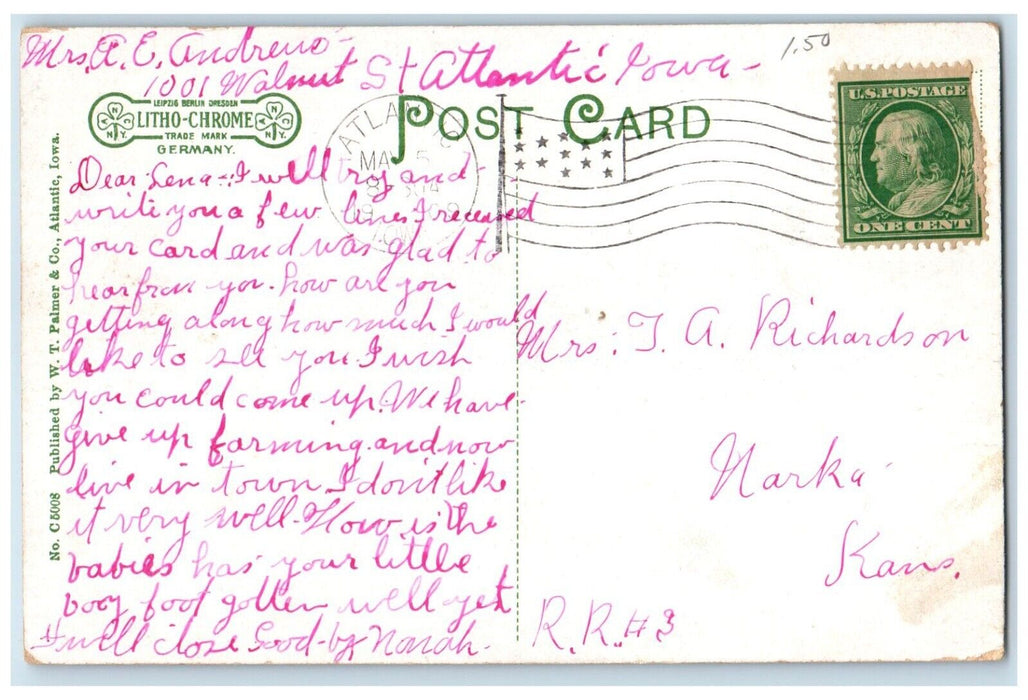 Mrs. A. E. Andrews
1001 Walnut St Atlantic Iowa
1.50
LEIPZIG BERLIN DRESDEN
LITHO-CHROME
TRADE MARK
GERMANY.
N N Y.
N N Y.
POST CARD
U.S. POSTAGE
ONE CENT
ATLANTIC
MAY 5
IOWA
No. C 5008 Published by W. T. Palmer & Co., Atlantic, Iowa.
Dear Lena-: I will try and
write you a few lines I received
your card and was glad to
hear from you. how are you
getting along how much I would
like to see you I wish
you could come up. We have
give up farming. and now
live in town I don't like
it very well. How is the
babies has your little
booy foot gotten well yet
I will close Good-by Norah.
Mrs. T. A. Richardson
Narka
Kans.
R. R. #3